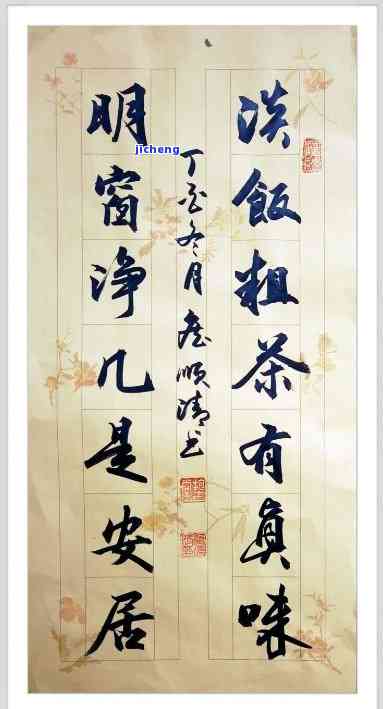 淡飯粗茶有真味
明窗净几是安居
丁冬月順清书
jicheng